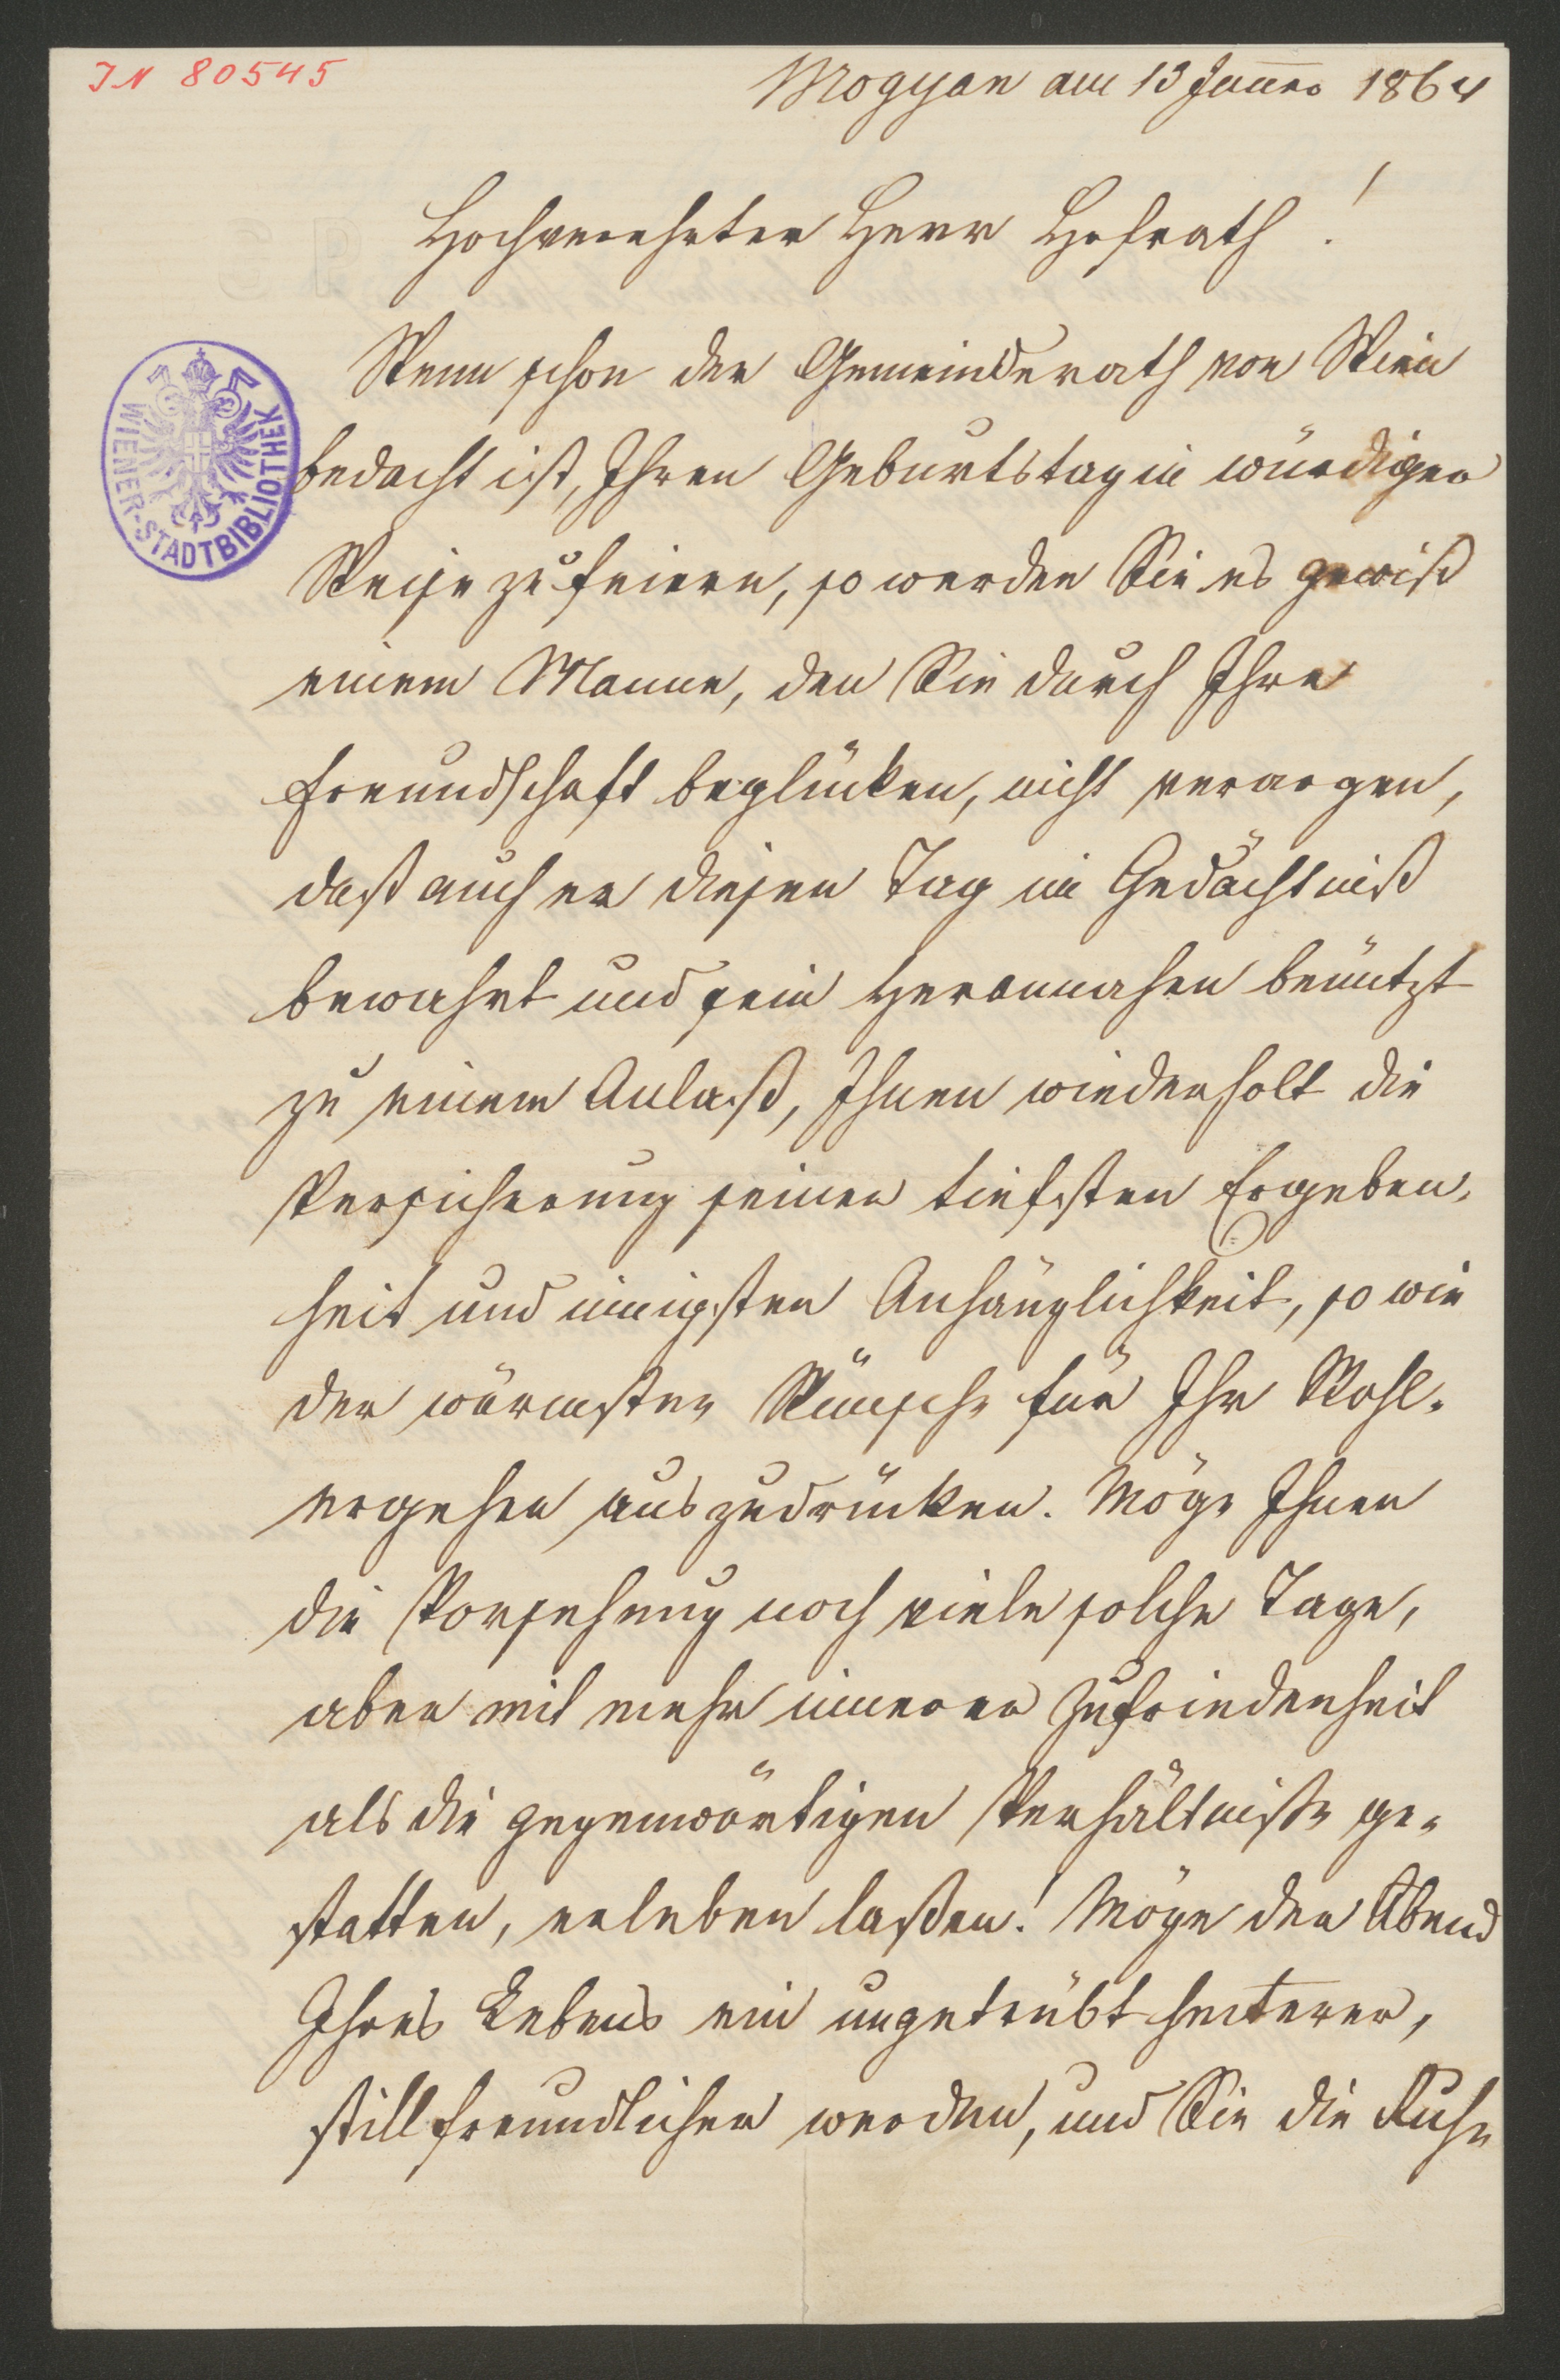 IN 80545
Mogyan am 13 Jänner 1864
Hochverehrter Herr Hofrath!
Wenn schon der Gemeinderath von Wien
bedacht ist, Ihren Geburtstag in würdiger
Weise zu feiern, so werden Sie es gewiß
einem Manne, den Sie durch Ihre
Freundschaft beglücken, nicht verargen,
daß auch er diesen Tag im Gedächtniß
bewahrt und sein Herannahen benützt
zu einem Anlaß, Ihnen wiederholt die
Versicherung seiner tiefsten Ergeben-
heit und innigsten Anhänglichkeit, so wie
der wärmsten Wünsche für Ihr Wohl-
ergehen auszudrücken. Möge Ihnen
die Vorsehung noch viele solche Tage,
aber mit mehr innerer Zufriedenheit
als die gegenwärtigen Verhältnisse ge-
statten, erleben laßen! Möge der Abend
Ihres Lebens ein ungetrübt heiterer,
still freundlicher werden, und Sie die Ruhe
WIENER-STADTBIBLIOTHEK